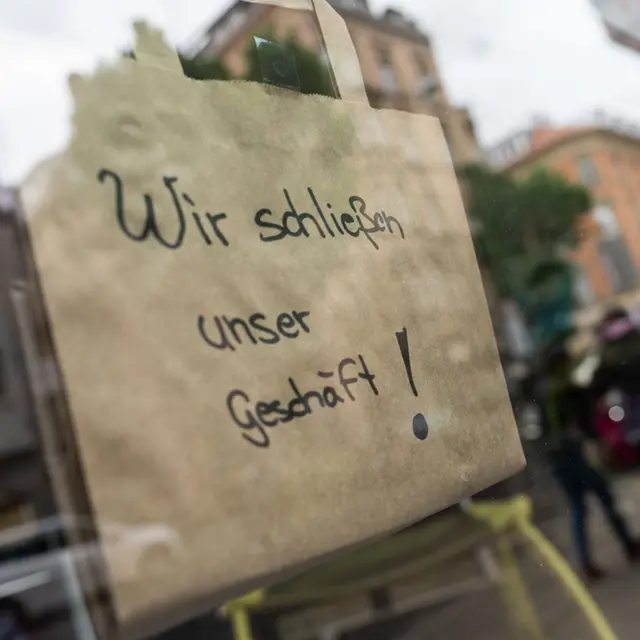 Wir schließen
unser
Geschäft !